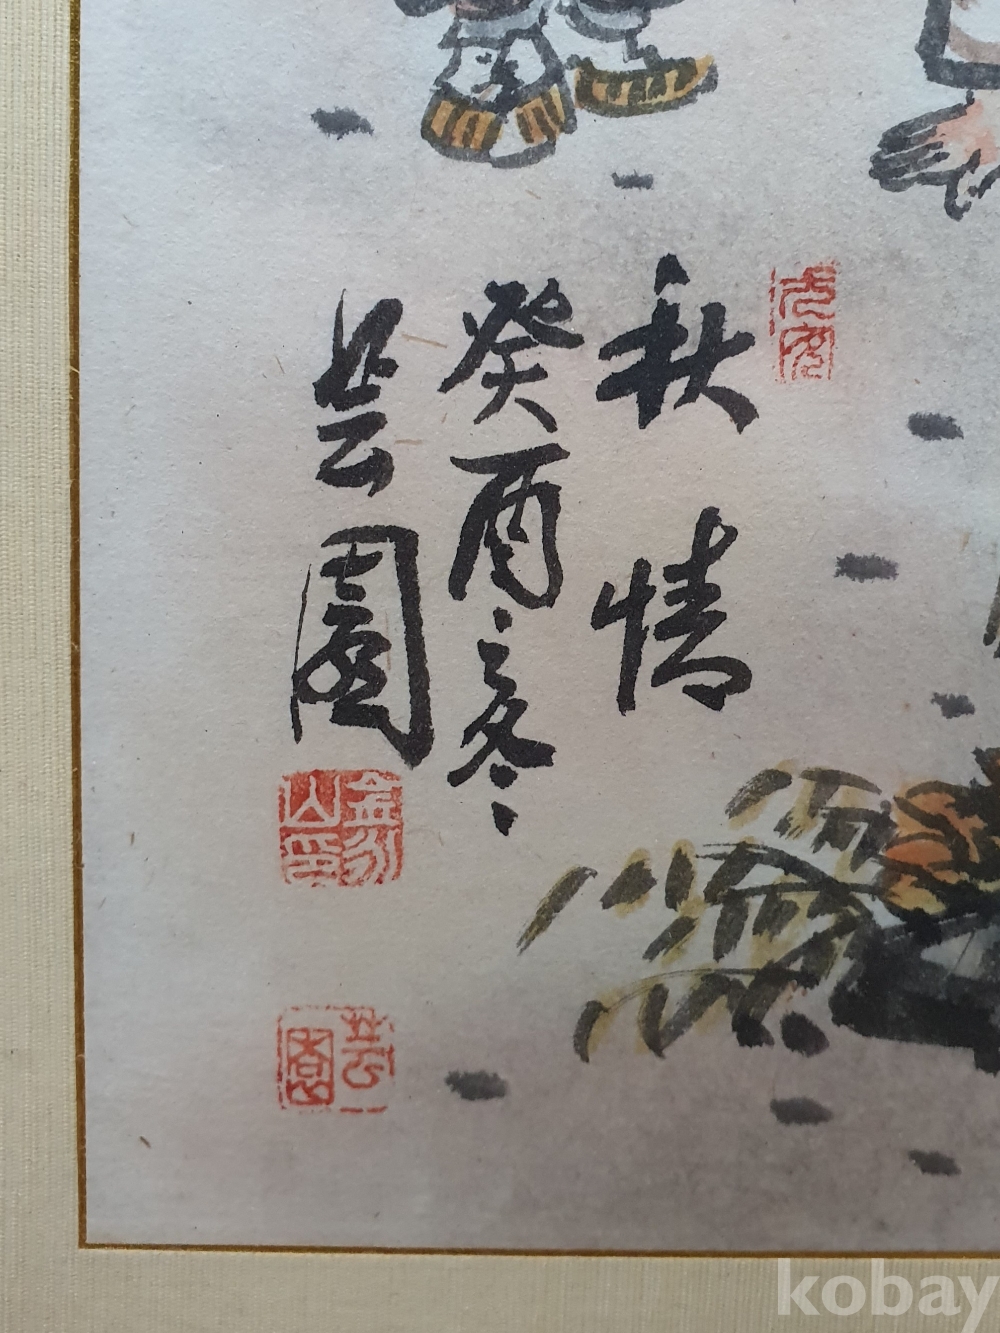 秋情
癸酉之冬
芸園
山印
芸園
kobay